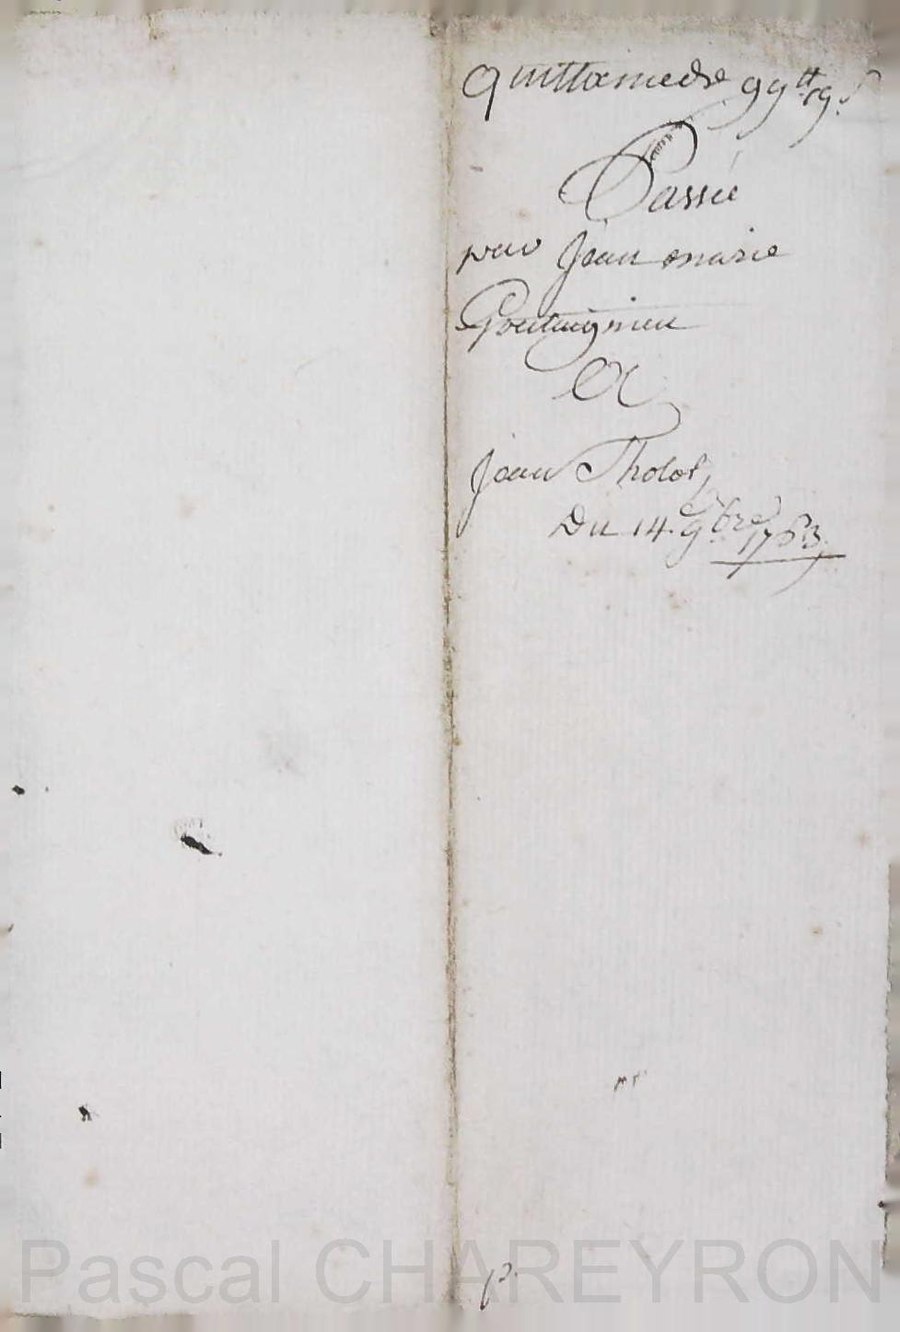 quittance de 99tt 19s
Passée
par Jean marie
a
Jean Tholot,
Du 14. 9bre
1763.
p.
Pascal CHAREYRON